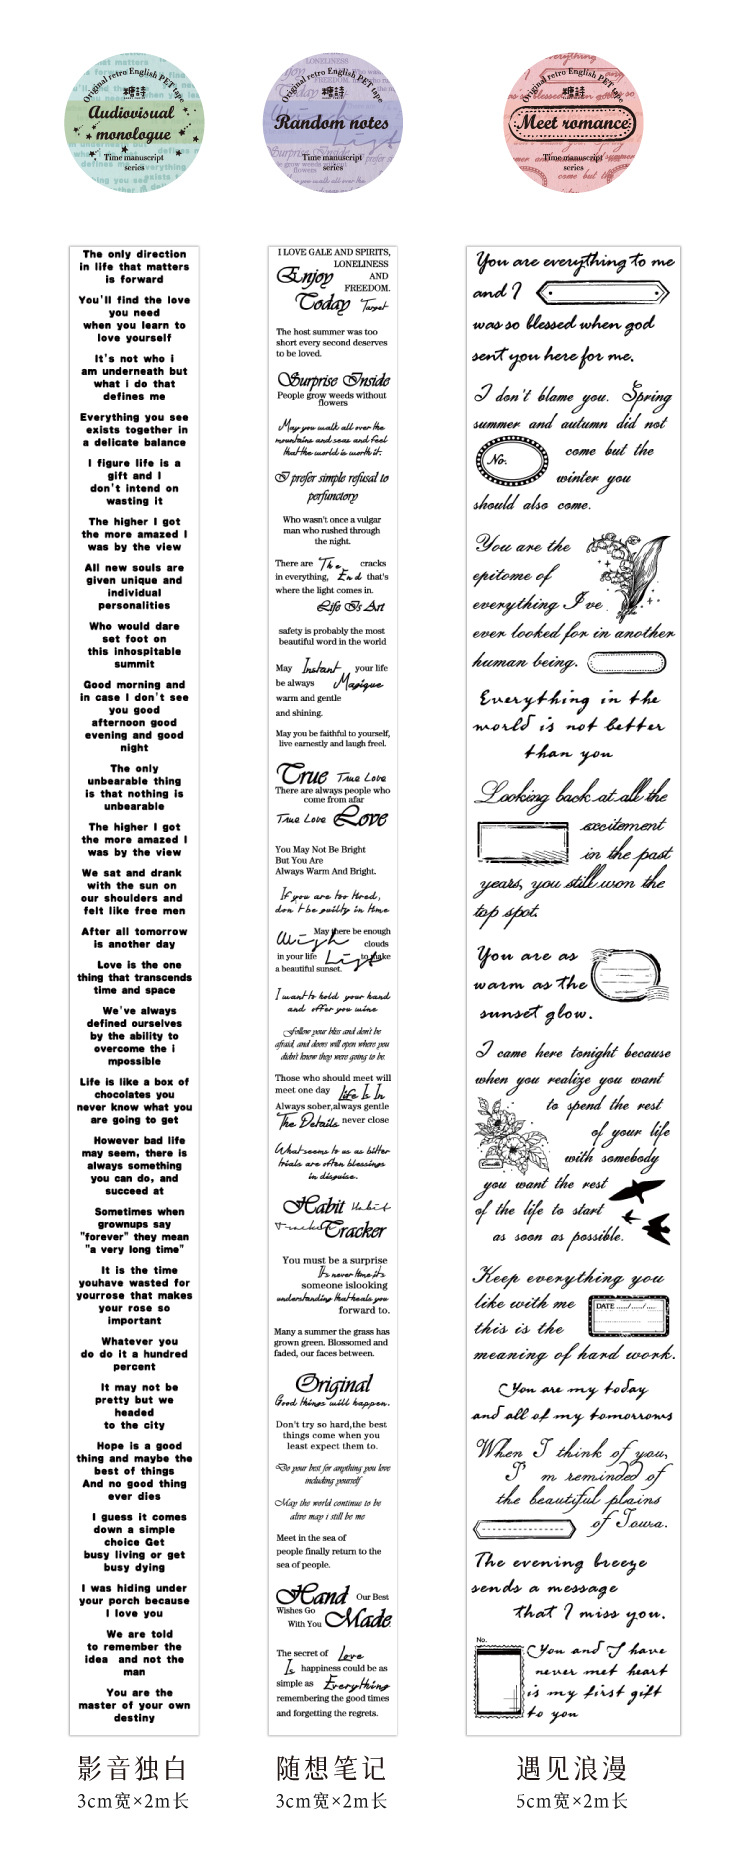 Original retro English PET tape
糖詩
Audiovisual
monologue
Time manuscript
series
Original retro English PET tape
糖詩
Random notes
Time manuscript
series
Original retro English PET tape
糖詩
Meet romance
Time manuscript
series
The only direction
in life that matters
is forward
You'll find the love
you need
when you learn to
love yourself
It's not who i
am underneath but
what i do that
defines me
Everything you see
exists together in
a delicate balance
I figure life is a
gift and I
don't intend on
wasting it
The higher I got
the more amazed I
was by the view
All new souls are
given unique and
individual
personalities
Who would dare
set foot on
this inhospitable
summit
Good morning and
in case I don't see
you good
afternoon good
evening and good
night
The only
unbearable thing
is that nothing is
unbearable
The higher I got
the more amazed I
was by the view
We sat and drank
with the sun on
our shoulders and
felt like free men
After all tomorrow
is another day
Love is the one
thing that transcends
time and space
We've always
defined ourselves
by the ability to
overcome the i
mpossible
Life is like a box of
chocolates you
never know what you
are going to get
However bad life
may seem, there is
always something
you can do, and
succeed at
Sometimes when
grownups say
"forever" they mean
"a very long time"
It is the time
youhave wasted for
yourrose that makes
your rose so
important
Whatever you
do do it a hundred
percent
It may not be
pretty but we
headed
to the city
Hope is a good
thing and maybe the
best of things
And no good thing
ever dies
I guess it comes
down a simple
choice Get
busy living or get
busy dying
I was hiding under
your porch because
I love you
We are told
to remember the
idea and not the
man
You are the
master of your own
destiny
I LOVE GALE AND SPIRITS,
LONELINESS
Enjoy AND
FREEDOM.
Today Target
The host summer was too
short every second deserves
to be loved.
Surprise Inside
People grow weeds without
flowers
May you walk all over the
mountains and seas and feel
that the world is worth it.
I prefer simple refusal to
perfunctory
Who wasn't once a vulgar
man who rushed through
the night.
There are The cracks
in everything, End that's
where the light comes in.
Life Is Art
safety is probably the most
beautiful word in the world
May Instant your life
be always Magique
warm and gentle
and shining.
May you be faithful to yourself,
live earnestly and laugh freel.
True True Love
There are always people who
come from afar
True Love Love
You May Not Be Bright
But You Are
Always Warm And Bright.
If you are too tired,
don't be guilty in time
May there be enough
Wish clouds
in your life List to make
a beautiful sunset.
I want to hold your hand
and offer you wine
Follow your bliss and don't be
afraid, and doors will open where you
didn't know they were going to be.
Those who should meet will
meet one day Life Is In
Always sober,always gentle
The Details never close
What seems to us as bitter
trials are often blessings
in disguise.
Habit Habit
Tracker Tracker
You must be a surprise
It's never time it's
someone islooking
understanding that heals you
forward to.
Many a summer the grass has
grown green. Blossomed and
faded, our faces between.
Original
Good things will happen.
Don't try so hard,the best
things come when you
least expect them to.
Do your best for anything you love
including yourself
May the world continue to be
alive may i still be me
Meet in the sea of
people finally return to the
sea of people.
Hand Our Best
Wishes Go
With You Made
The secret of Love
Is happiness could be as
simple as Everything
remembering the good times
and forgetting the regrets.
You are everything to me
and I
was so blessed when god
sent you here for me.
I don't blame you. Spring
summer and autumn did not
No. come but the
winter you
should also come.
You are the
epitome of
everything I've
ever looked for in another
human being.
Everything in the
world is not better
than you
Looking back at all the
excitement
in the past
years, you still won the
top spot.
You are as
warm as the
sunset glow.
I came here tonight because
when you realize you want
to spend the rest
of your life
with somebody
you want the rest
of the life to start
as soon as possible.
Keep everything you
like with me
DATE
this is the
meaning of hard work.
You are my today
and all of my tomorrows
When I think of you,
I'm reminded of
the beautiful plains
of Iowa.
The evening breeze
sends a message
that I miss you.
No.
You and I have
never met heart
is my first gift
to you
影音独白
3cm宽×2m长
随想笔记
3cm宽×2m长
遇见浪漫
5cm宽×2m长